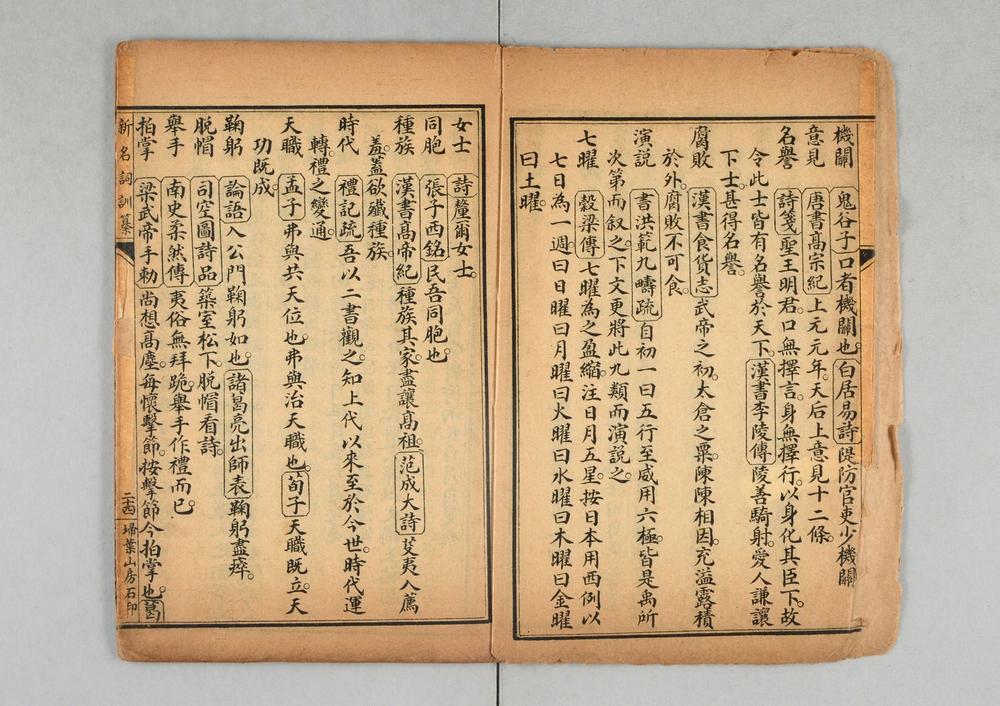 機關　鬼谷子口者機關也。白居易詩隄防官吏少機關
意見　唐書高宗紀上元元年。天后上意見十二條。
名譽　詩箋聖王明君。口無擇言。身無擇行。以身化其臣下。故
令此士皆有名譽於天下。漢書李陵傳陵善騎射。愛人謙讓
下士。甚得名譽。
腐敗　漢書食貨志武帝之初。太倉之粟。陳陳相因。充溢露積
於外。腐敗不可食
演說　書洪範九疇疏自初一曰五行至威用六極。皆是禹所
次第而叙之。下文更將此九類而演說之。
七曜　穀梁傳七曜為之盈縮。注日月五星。按日本用西例以
七日為一週。曰日曜曰月曜曰火曜曰水曜曰木曜曰金曜
曰土曜。
女士　詩釐爾女士。
同胞　張子西銘民吾同胞也。
種族　漢書高帝紀種族其家。盡讓高祖。范成大詩芟夷入薦
羞。蓋欲殱種族
時代　禮記疏吾以二書觀之。知上代以來至於今世。時代運
轉。禮之變通。
天職　孟子弗與共天位也。弗與治天職也。荀子天職既立。天
功既成。
鞠躬　論語入公門鞠躬如也。諸葛亮出師表鞠躬盡瘁。
脫帽　司空圖詩品築室松下。脫帽看詩。
舉手　南史柔然傳夷俗無拜跪。舉手作禮而已。
拍掌　梁武帝手勅尚想高塵。每懷擊節。按擊節今拍掌也。葛
新名詞訓纂　二十四　埽葉山房石印